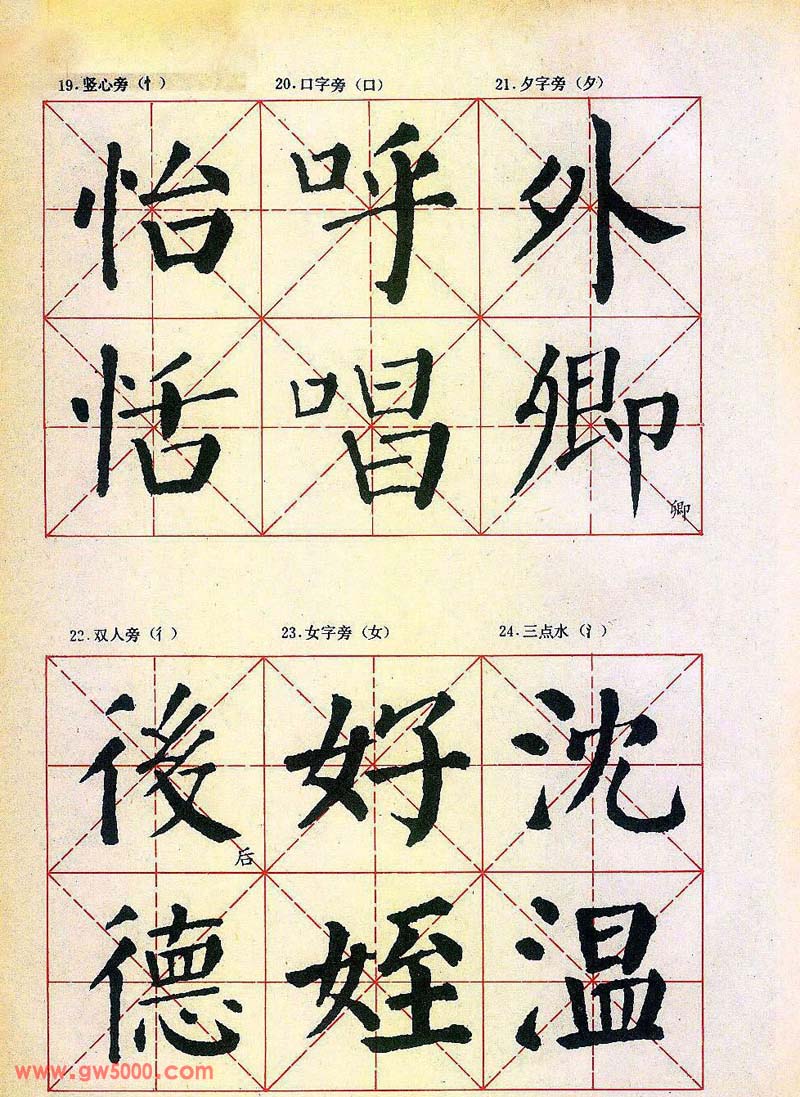 19.竖心旁（忄） 20.口字旁（口） 21.夕字旁（夕）
怡 呼 外
恬 唱 卿
卿
22.双人旁（彳） 23.女字旁（女） 24.三点水（氵）
後 好 沈
后
德 姪 温
www.gw5000.com